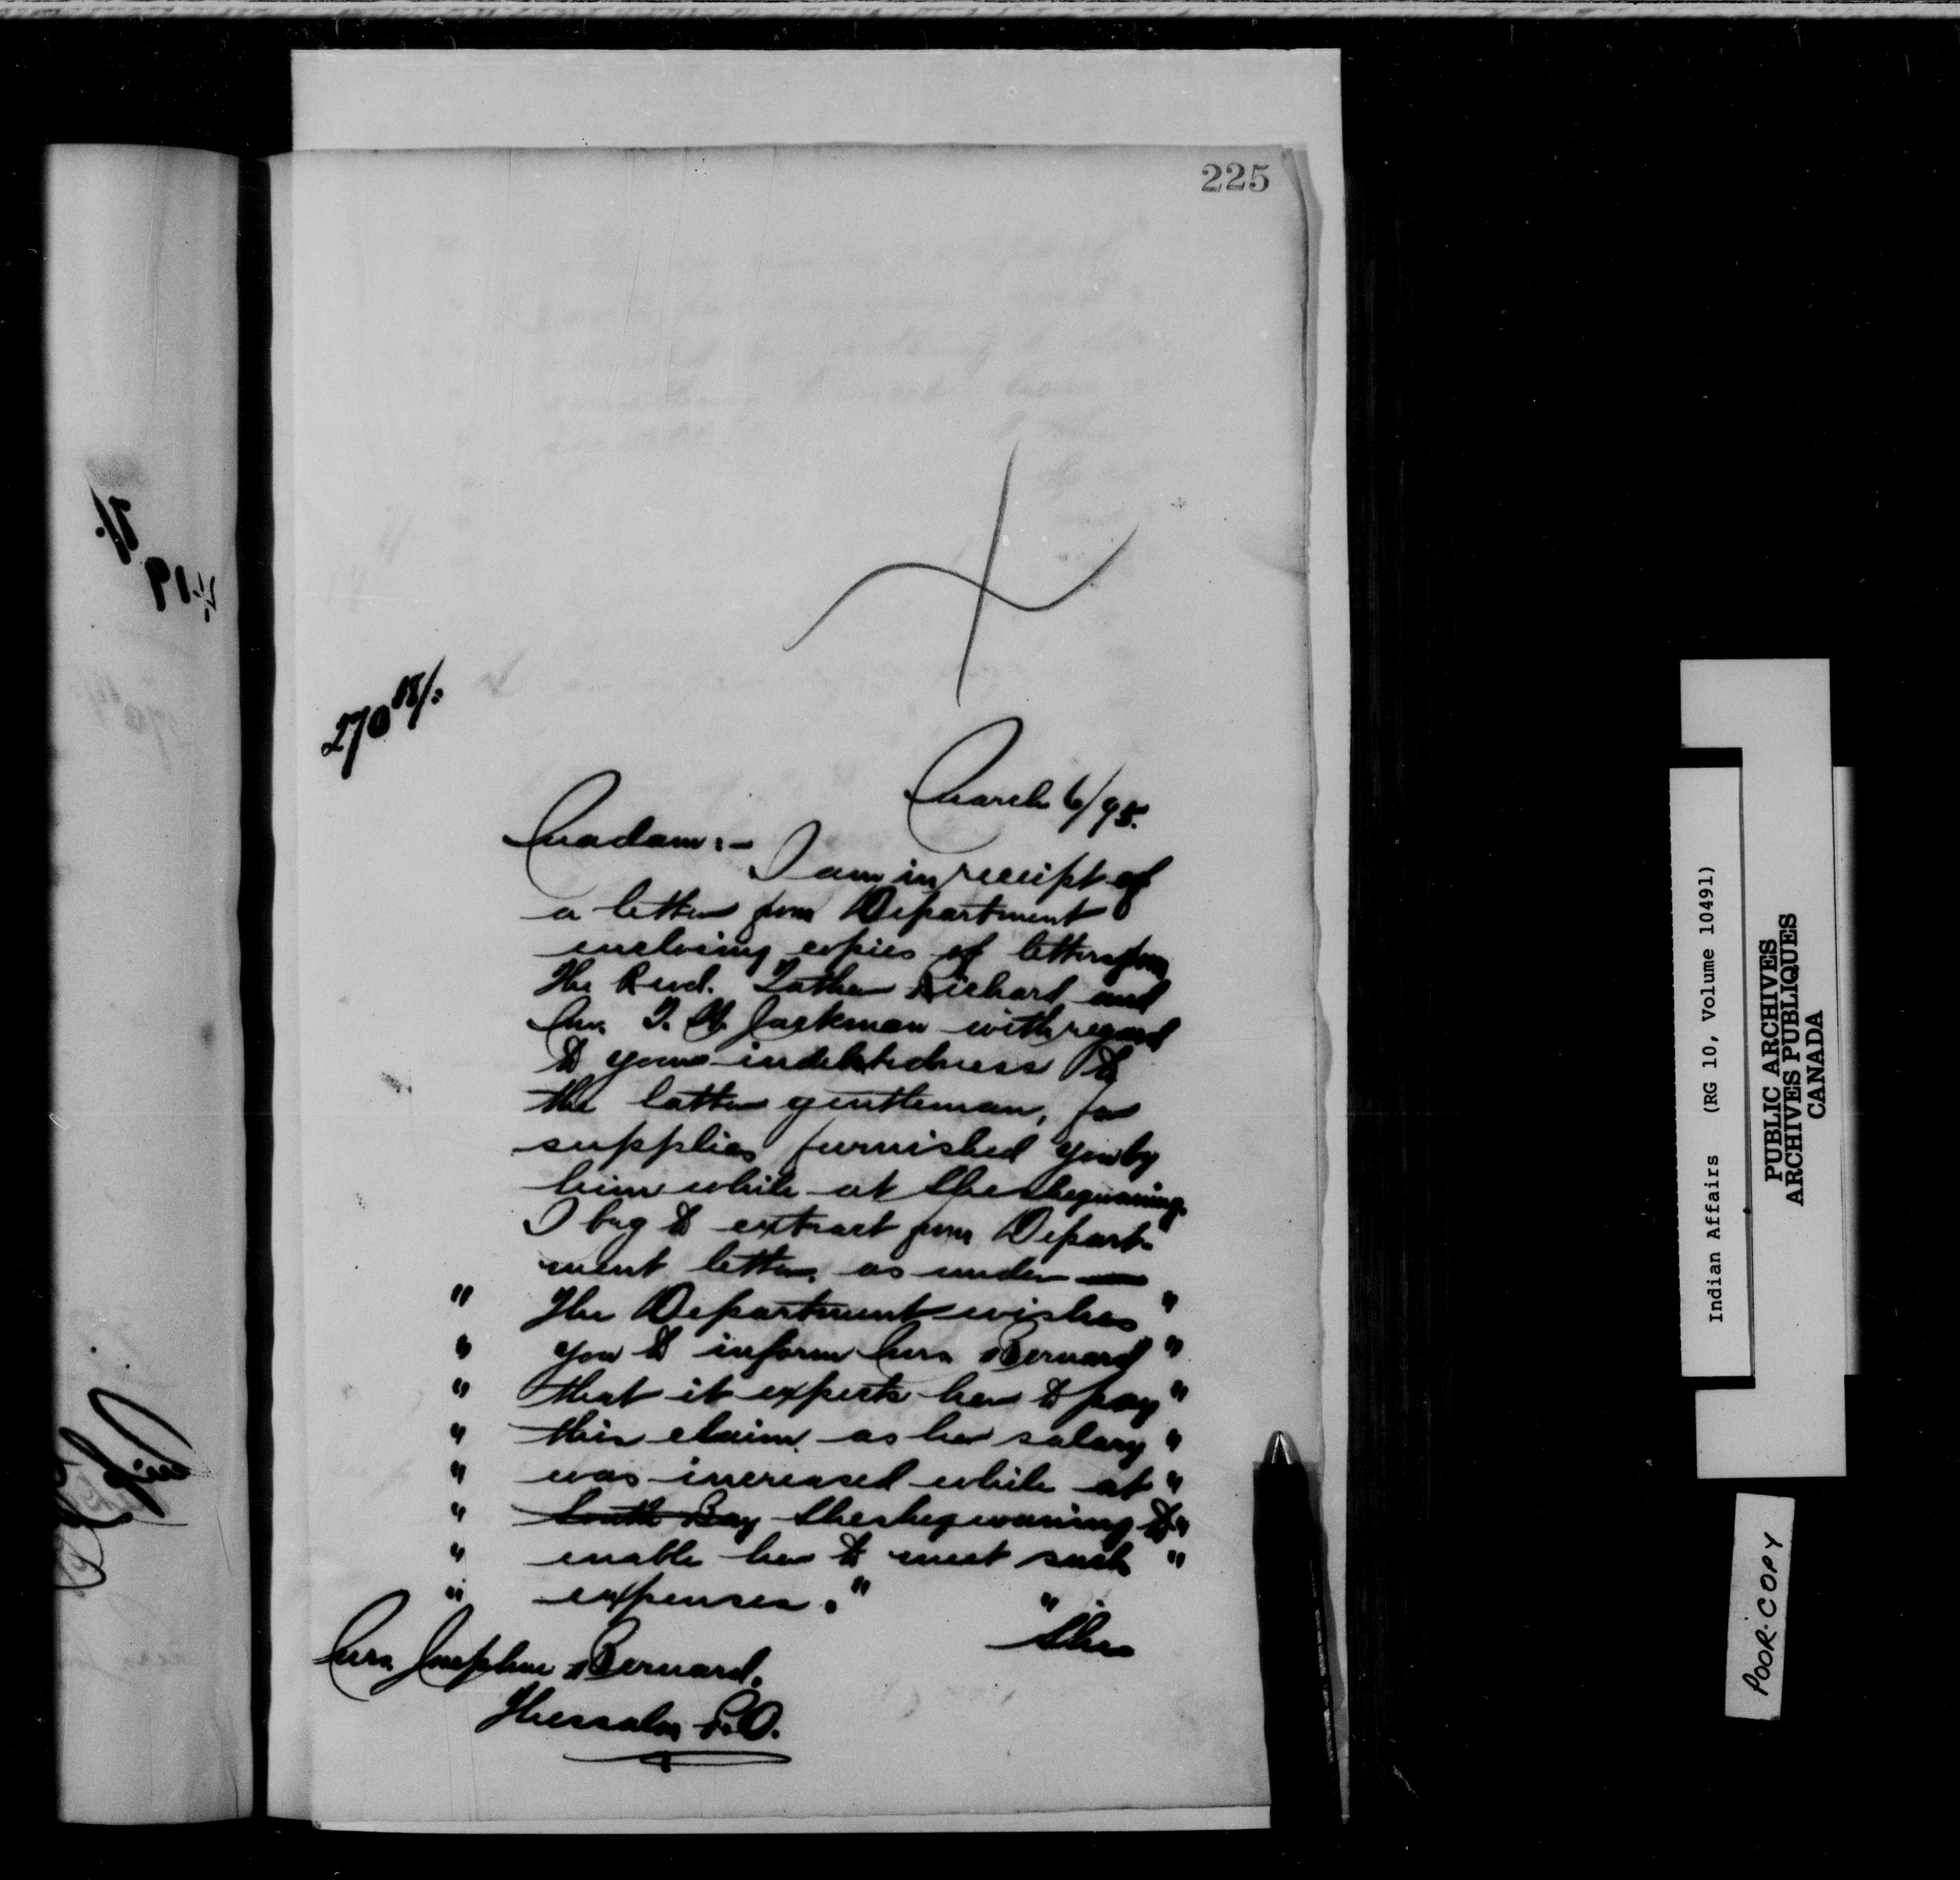 225
270 18/:
March 6/95.
Madam:-
I am in receipt of
a letter from Department
enclosing copies of letters from
The Revd. Father Richard and
Mr. Jackman with regard
to your indebtedness to
the latter gentleman, for
supplies furnished you by
him while at Sheshegwaning.
I beg to extract from Depart-
ment letter, as under —
" The Department wishes "
" you to inform Mrs. Bernard "
" that it expects her to pay "
" this claim, as her salary "
" was increased while at "
" South Bay Sheshegwaning to "
" enable her to meet such "
" expenses." "
She
Mrs. Josephine Bernard,
Thessalon P.O.
Indian Affairs (RG 10, Volume 10491)
PUBLIC ARCHIVES
ARCHIVES PUBLIQUES
CANADA
POOR COPY